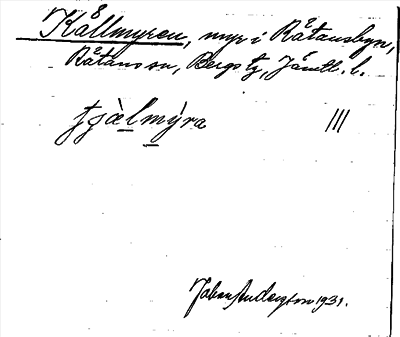 Kållmyren, myr i Råtansbyn,
Råtans sn, Bergs tg, Jämtl. l.
tjàlmýra III
Johan Anderson 1931.